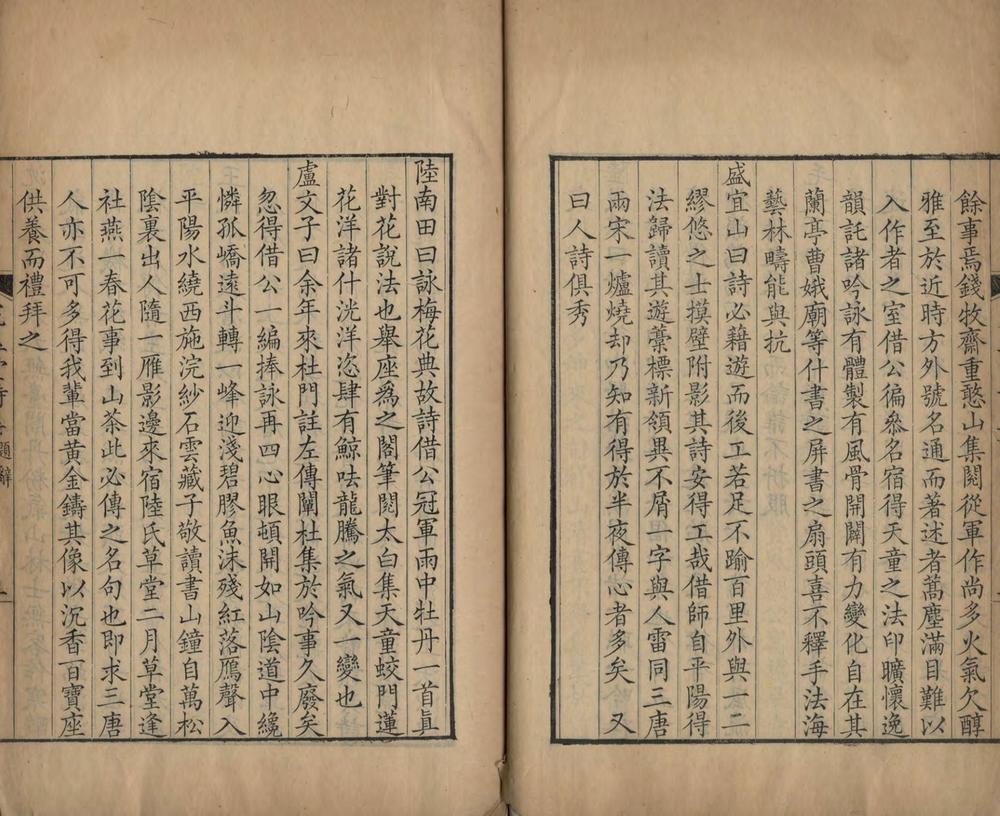 餘事焉錢牧齋重憨山集閱從軍作尚多火氣欠醇
雅至於近時方外號名通而著述者萬塵滿目難以
入作者之室借公徧叅名宿得天童之法印曠懷逸
韻託諸吟詠有體製有風骨開闢有力變化自在其
蘭亭曹娥廟等什書之屏書之扇頭喜不釋手法海
藝林疇能與抗
盛宜山曰詩必藉遊而後工若足不踰百里外與一二
繆悠之士摸壁附影其詩安得工哉借師自平陽得
法歸讀其遊藁標新領異不屑一字與人雷同三唐
兩宋一爐燒却乃知有得於半夜傳心者多矣 又
曰人詩俱秀
陸南田曰詠梅花典故詩借公冠軍雨中牡丹一首眞
對花說法也舉座爲之閣筆閱太白集天童蛟門蓮
花洋諸什洸洋恣肆有鯨呿龍騰之氣又一變也
盧文子曰余年來杜門註左傳闡杜集於吟事久廢矣
忽得借公一編捧詠再四心眼頓開如山陰道中纔
憐孤嶠遠斗轉一峰迎淺碧膠魚沫殘紅落鴈聲入
平陽水繞西施浣紗石雲藏子敬讀書山鐘自萬松
陰裏出人隨一雁影邊來宿陸氏草堂二月草堂逢
社燕一春花事到山茶此必傳之名句也即求三唐
人亦不可多得我輩當黃金鑄其像以沉香百寶座
供養而禮拜之
題辭